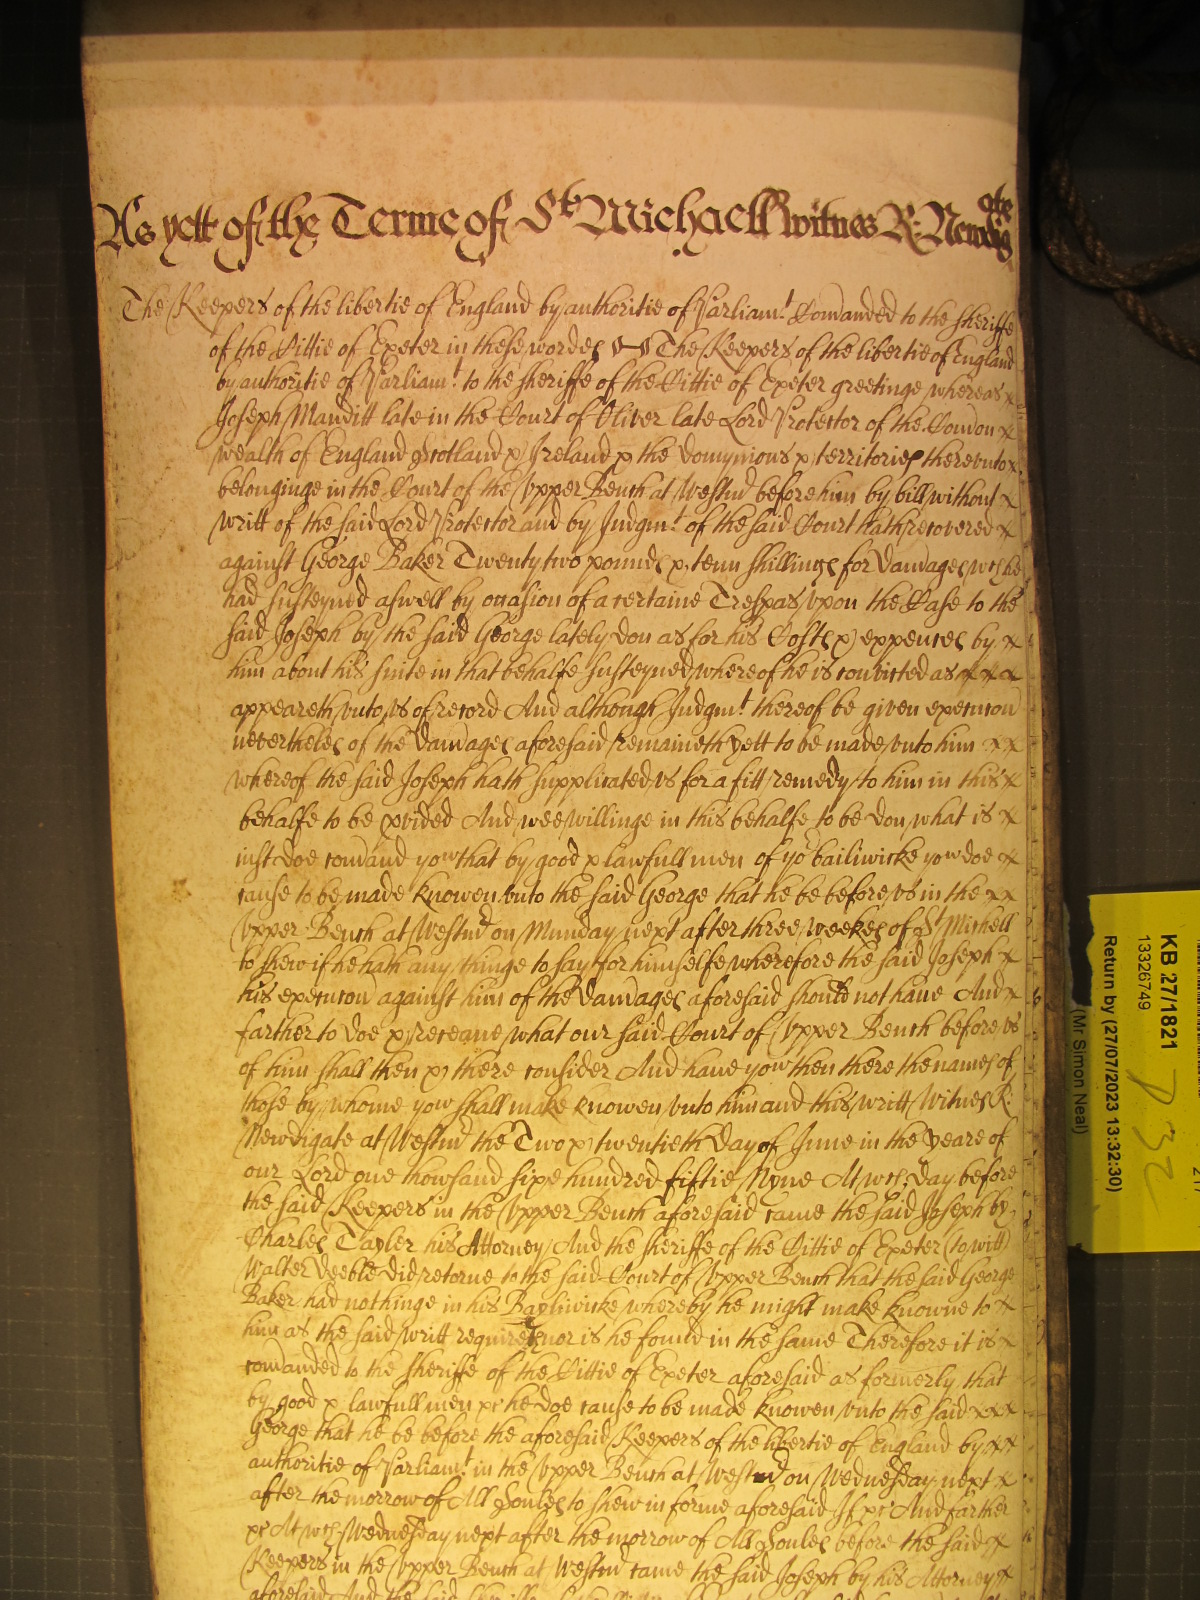 As yett of the Terme of St Michaell witnes R: Newdigate
The Keepers of the libertie of England by authoritie of Parliamt. Comanded to the Sheriffe
of the Cittie of Exeter in these wordes The Keepers of the libertie of England
by authoritie of Parliamt. to the Sheriffe of the Cittie of Exeter greetinge whereas
Joseph Mauditt late in the Court of Oliver late Lord Protector of the Comon
wealth of England Scotland & Ireland & the domynions & territories thereunto
belonginge in the Court of the Upper Bench at Westmr before him by bill without
writt of the said Lord Protector and by Judgmt. of the said Court hath recovered
against George Baker Twenty two pounds & tenn shillings for damages wch he
had susteyned aswell by occasion of a certaine Trespas upon the Case to the
said Joseph by the said George lately don as for his Costs & expences by
him about his suite in that behalfe susteyned whereof he is convicted as
appeareth unto us of record And although Judgmt. thereof be given execucon
neverthelesse of the damages aforesaid remaineth yett to be made unto him
whereof the said Joseph hath supplicated us for a fitt remedy to him in this
behalfe to be pvided And wee willinge in this behalfe to be don what is
iust doe comand yow that by good & lawfull men of yor bailiwicke yow doe
cause to be made knowen unto the said George that he be before us in the
Upper Bench at Westmr on Munday next after three weekes of St Michell
to shew if he hath any thinge to say for himselfe wherefore the said Joseph
his execucon against him of the damages aforesaid should not have And
farther to doe & receave what our said Court of Upper Bench before us
of him shall then & there consider And have yow then there the names of
those by whome yow shall make knowen unto him and this writt Witnes R:
Newdigate at Westmr the Two & twentieth day of June in the yeare of
our Lord one thowsand sixe hundred fiftie Nyne At wch. day before
the said Keepers in the Upper Bench aforesaid came the said Joseph by
Charles Tayler his Attorney And the Sheriffe of the Cittie of Exeter (to witt)
Walter Deeble did retorne to the said Court of Upper Bench that the said George
Baker had nothinge in his Bayliwicke whereby he might make knowne to
him as the said writt requires nor is he found in the same Therefore it is
comanded to the Sheriffe of the Cittie of Exeter aforesaid as formerly that
by good & lawfull men &c he doe cause to be made knowen unto the said
George that he be before the aforesaid Keepers of the libertie of England by
authoritie of Parliamt. in the Upper Bench at Westmr on Wednesday next
after the morrow of All Soules to shew in forme aforesaid If &c And farther
&c At wch Wednesday next after the morrow of All Soules before the said
Keepers in the Upper Bench at Westmr came the said Joseph by his Attorney
aforesaid And the said Sheriffe
KB 27/1821
13326749
Return by (27/07/2023 13:32:30)
(Mr Simon Neal)
D32